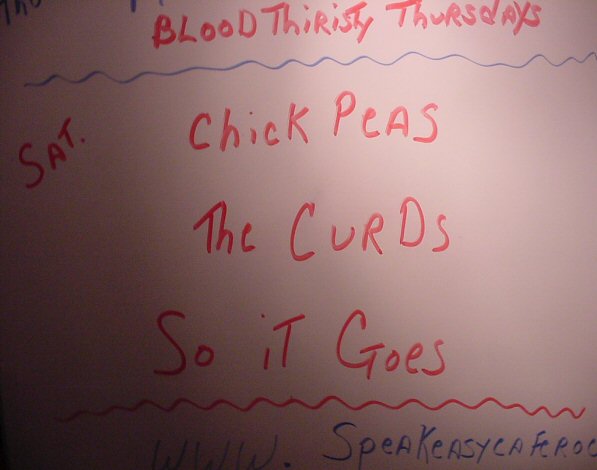 BLOOD THIRISTY THURSDAYS
SAT.
Chick PEAS
The CURDS
So iT Goes
WWW. SpeakeasycaFeroc